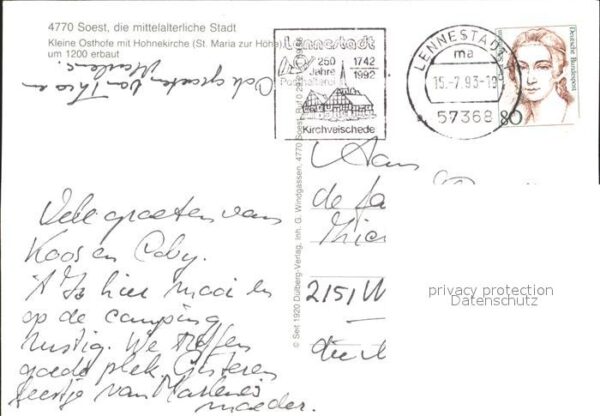 4770 Soest, die mittelalterliche Stadt
Kleine Osthofe mit Hohnekirche (St. Maria zur Höhe)
um 1200 erbaut
Ook groeten van Theo en
Marlene.
Lennestadt
250 1742
Jahre 1992
Kirchveischede
LENNESTADT
ma
15.-7.93-19
57368
Deutsche Bundespost
80
© Seit 1920 Dülberg-Verlag, Inh. G. Windgassen, 4770 Soest
Aan
de fa
2151 W
privacy protection
Datenschutz
Vele groeten van
Koos en Coby.
't Is hier mooi en
op de camping
rustig. We treffen
goede plek. Gisteren
feestje van Marlenes
moeder.